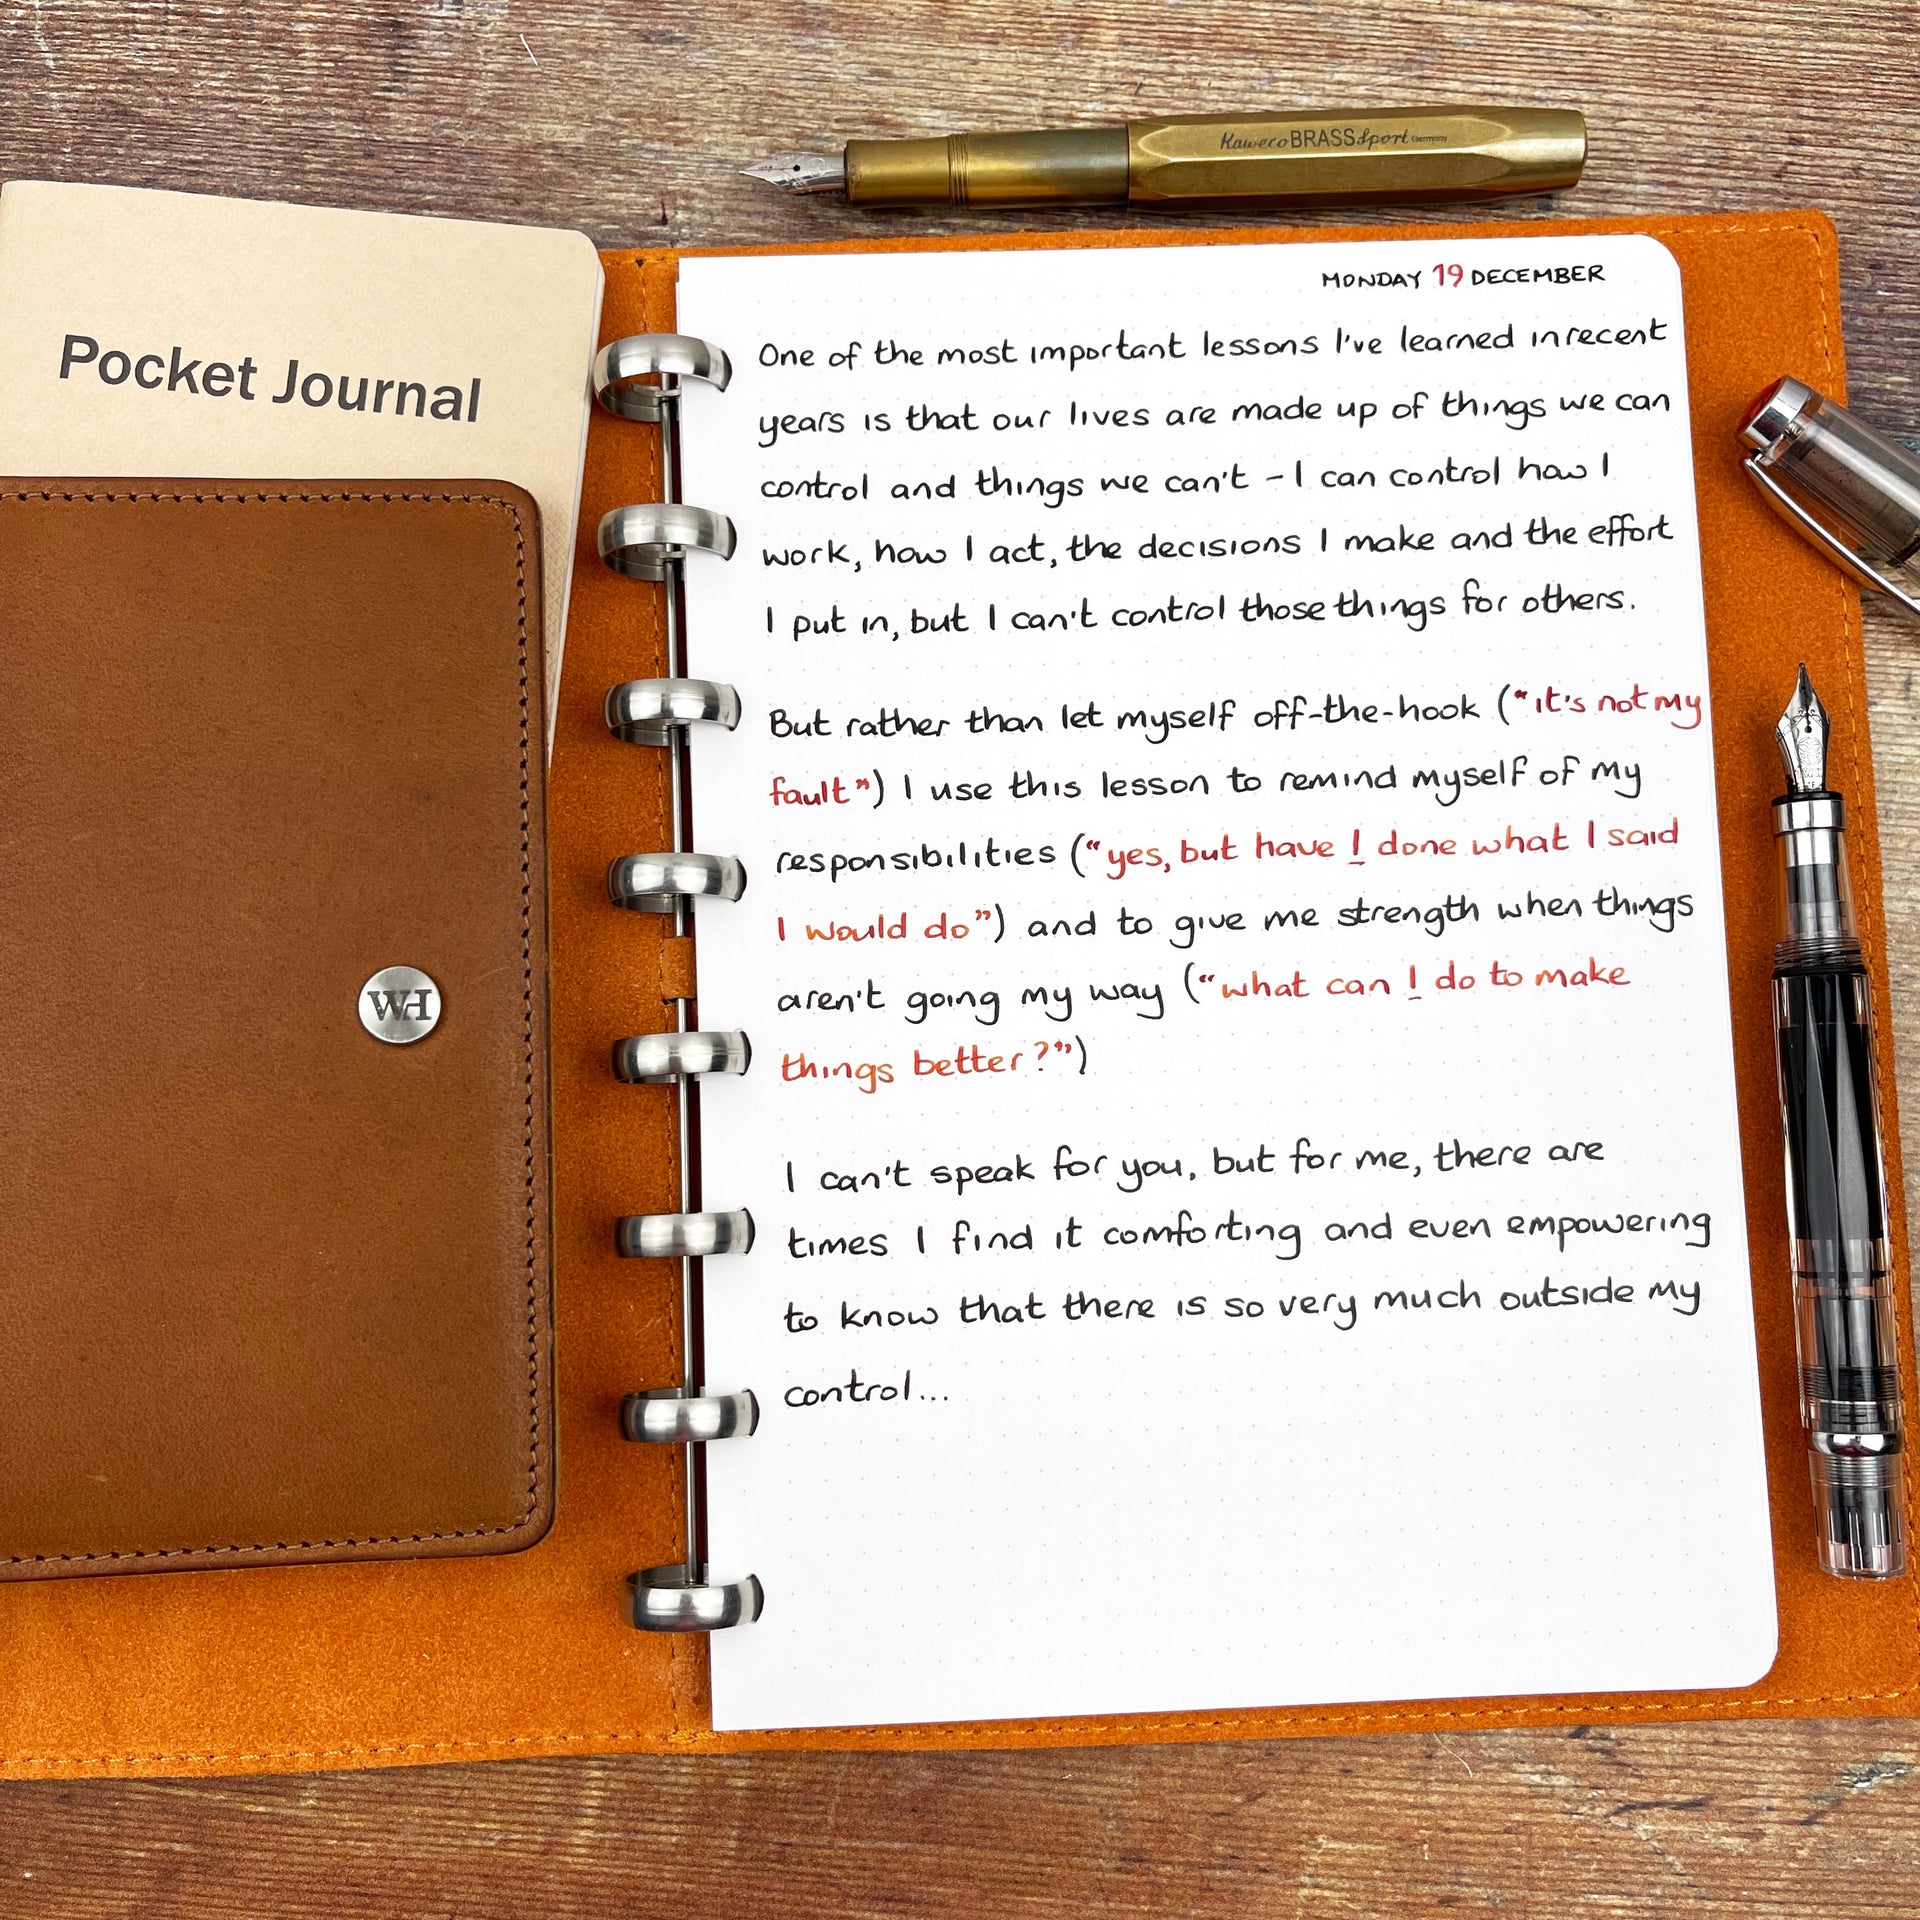 Kaweco BRASS Sport Germany
Pocket Journal
WH
MONDAY 19 DECEMBER
One of the most important lessons I've learned in recent
years is that our lives are made up of things we can
control and things we can't – I can control how I
work, how I act, the decisions I make and the effort
I put in, but I can't control those things for others.
But rather than let myself off-the-hook ("it's not my
fault") I use this lesson to remind myself of my
responsibilities ("yes, but have I done what I said
I would do") and to give me strength when things
aren't going my way ("what can I do to make
things better?")
I can't speak for you, but for me, there are
times I find it comforting and even empowering
to know that there is so very much outside my
control...